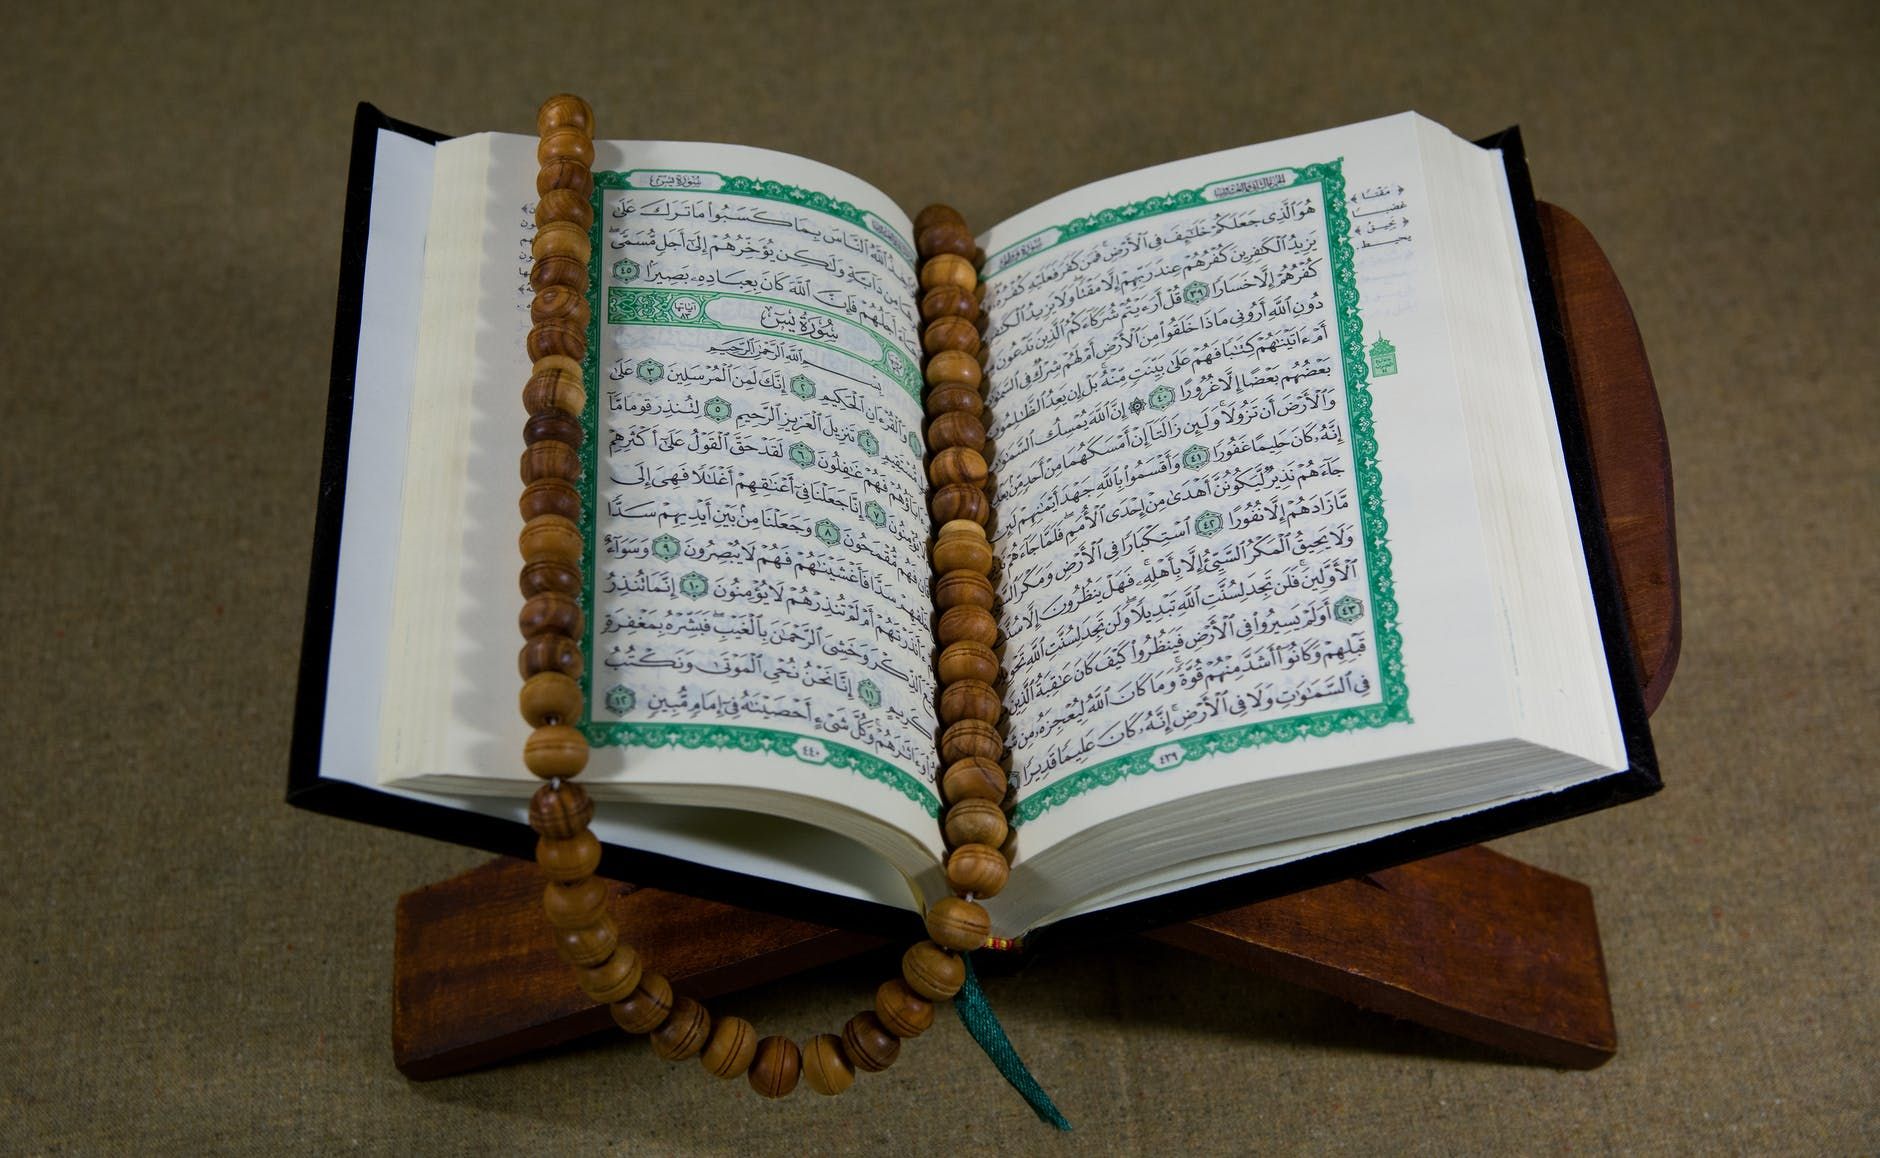 الجزء الثاني والعشرون
سورة فاطر
هُوَ ٱلَّذِى جَعَلَكُمْ خَلَـٰٓئِفَ فِى ٱلْأَرْضِ فَمَن كَفَرَ فَعَلَيْهِ كُفْرُهُۥ
يَزِيدُ ٱلْكَـٰفِرِينَ كُفْرُهُمْ عِندَ رَبِّهِمْ إِلَّا مَقْتًا وَلَا يَزِيدُ
كُفْرُهُمْ إِلَّا خَسَارًا ٣٩ قُلْ أَرَءَيْتُمْ شُرَكَآءَكُمُ ٱلَّذِينَ تَدْعُونَ
دُونِ ٱللَّهِ أَرُونِى مَاذَا خَلَقُوا۟ مِنَ ٱلْأَرْضِ أَمْ لَهُمْ شِرْكٌ فِى
أَمْ ءَاتَيْنَـٰهُمْ كِتَـٰبًا فَهُمْ عَلَىٰ بَيِّنَتٍ مِّنْهُ بَلْ إِن يَعِدُ ٱلظَّـٰلِمُونَ
بَعْضُهُم بَعْضًا إِلَّا غُرُورًا ٤٠ ۞ إِنَّ ٱللَّهَ يُمْسِكُ
وَٱلْأَرْضَ أَن تَزُولَا وَلَئِن زَالَتَآ إِنْ أَمْسَكَهُمَا مِنْ أَحَدٍ مِّنۢ
إِنَّهُۥ كَانَ حَلِيمًا غَفُورًا ٤١ وَأَقْسَمُوا۟ بِٱللَّهِ جَهْدَ أَيْمَـٰنِهِمْ لَئِن
جَآءَهُمْ نَذِيرٌ لَّيَكُونُنَّ أَهْدَىٰ مِنْ إِحْدَى ٱلْأُمَمِ فَلَمَّا جَآءَهُمْ
مَّا زَادَهُمْ إِلَّا نُفُورًا ٤٢ ٱسْتِكْبَارًا فِى ٱلْأَرْضِ وَمَكْرَ
وَلَا يَحِيقُ ٱلْمَكْرُ ٱلسَّيِّئُ إِلَّا بِأَهْلِهِۦ فَهَلْ يَنظُرُونَ إِلَّا
ٱلْأَوَّلِينَ فَلَن تَجِدَ لِسُنَّتِ ٱللَّهِ تَبْدِيلًا وَلَن تَجِدَ لِسُنَّتِ ٱللَّهِ
٤٣ أَوَلَمْ يَسِيرُوا۟ فِى ٱلْأَرْضِ فَيَنظُرُوا۟ كَيْفَ كَانَ عَـٰقِبَةُ ٱلَّذِينَ
قَبْلِهِمْ وَكَانُوٓا۟ أَشَدَّ مِنْهُمْ قُوَّةً وَمَا كَانَ ٱللَّهُ لِيُعْجِزَهُۥ مِن
فِى ٱلسَّمَـٰوَٰتِ وَلَا فِى ٱلْأَرْضِ إِنَّهُۥ كَانَ عَلِيمًا قَدِيرًا
٤٣٩
﴿ مَقْتًا ﴾
غضبا
﴿ يَحِيقُ ﴾
يحيط
سورة يسٓ
ٱللَّهُ ٱلنَّاسَ بِمَا كَسَبُوا۟ مَا تَرَكَ عَلَىٰ
مِن دَآبَّةٍ وَلَـٰكِن يُؤَخِّرُهُمْ إِلَىٰٓ أَجَلٍ مُّسَمًّى
جَآءَ أَجَلُهُمْ فَإِنَّ ٱللَّهَ كَانَ بِعِبَادِهِۦ بَصِيرًا ٤٥
سُورَةُ يسٓ
آياتها ٨٣
بِسْمِ ٱللَّهِ ٱلرَّحْمَـٰنِ ٱلرَّحِيمِ
وَٱلْقُرْءَانِ ٱلْحَكِيمِ ٢ إِنَّكَ لَمِنَ ٱلْمُرْسَلِينَ ٣ عَلَىٰ
مُّسْتَقِيمٍ ٤ تَنزِيلَ ٱلْعَزِيزِ ٱلرَّحِيمِ ٥ لِتُنذِرَ قَوْمًا مَّآ
ءَابَآؤُهُمْ فَهُمْ غَـٰفِلُونَ ٦ لَقَدْ حَقَّ ٱلْقَوْلُ عَلَىٰٓ أَكْثَرِهِمْ
يُؤْمِنُونَ ٧ إِنَّا جَعَلْنَا فِىٓ أَعْنَـٰقِهِمْ أَغْلَـٰلًا فَهِىَ إِلَى
فَهُم مُّقْمَحُونَ ٨ وَجَعَلْنَا مِنۢ بَيْنِ أَيْدِيهِمْ سَدًّا
خَلْفِهِمْ سَدًّا فَأَغْشَيْنَـٰهُمْ فَهُمْ لَا يُبْصِرُونَ ٩ وَسَوَآءٌ
ءَأَنذَرْتَهُمْ أَمْ لَمْ تُنذِرْهُمْ لَا يُؤْمِنُونَ ١٠ إِنَّمَا تُنذِرُ
ٱلذِّكْرَ وَخَشِىَ ٱلرَّحْمَـٰنَ بِٱلْغَيْبِ فَبَشِّرْهُ بِمَغْفِرَةٍ
كَرِيمٍ ١١ إِنَّا نَحْنُ نُحْىِ ٱلْمَوْتَىٰ وَنَكْتُبُ
وَءَاثَـٰرَهُمْ وَكُلَّ شَىْءٍ أَحْصَيْنَـٰهُ فِىٓ إِمَامٍ مُّبِينٍ ١٢
٤٤٠